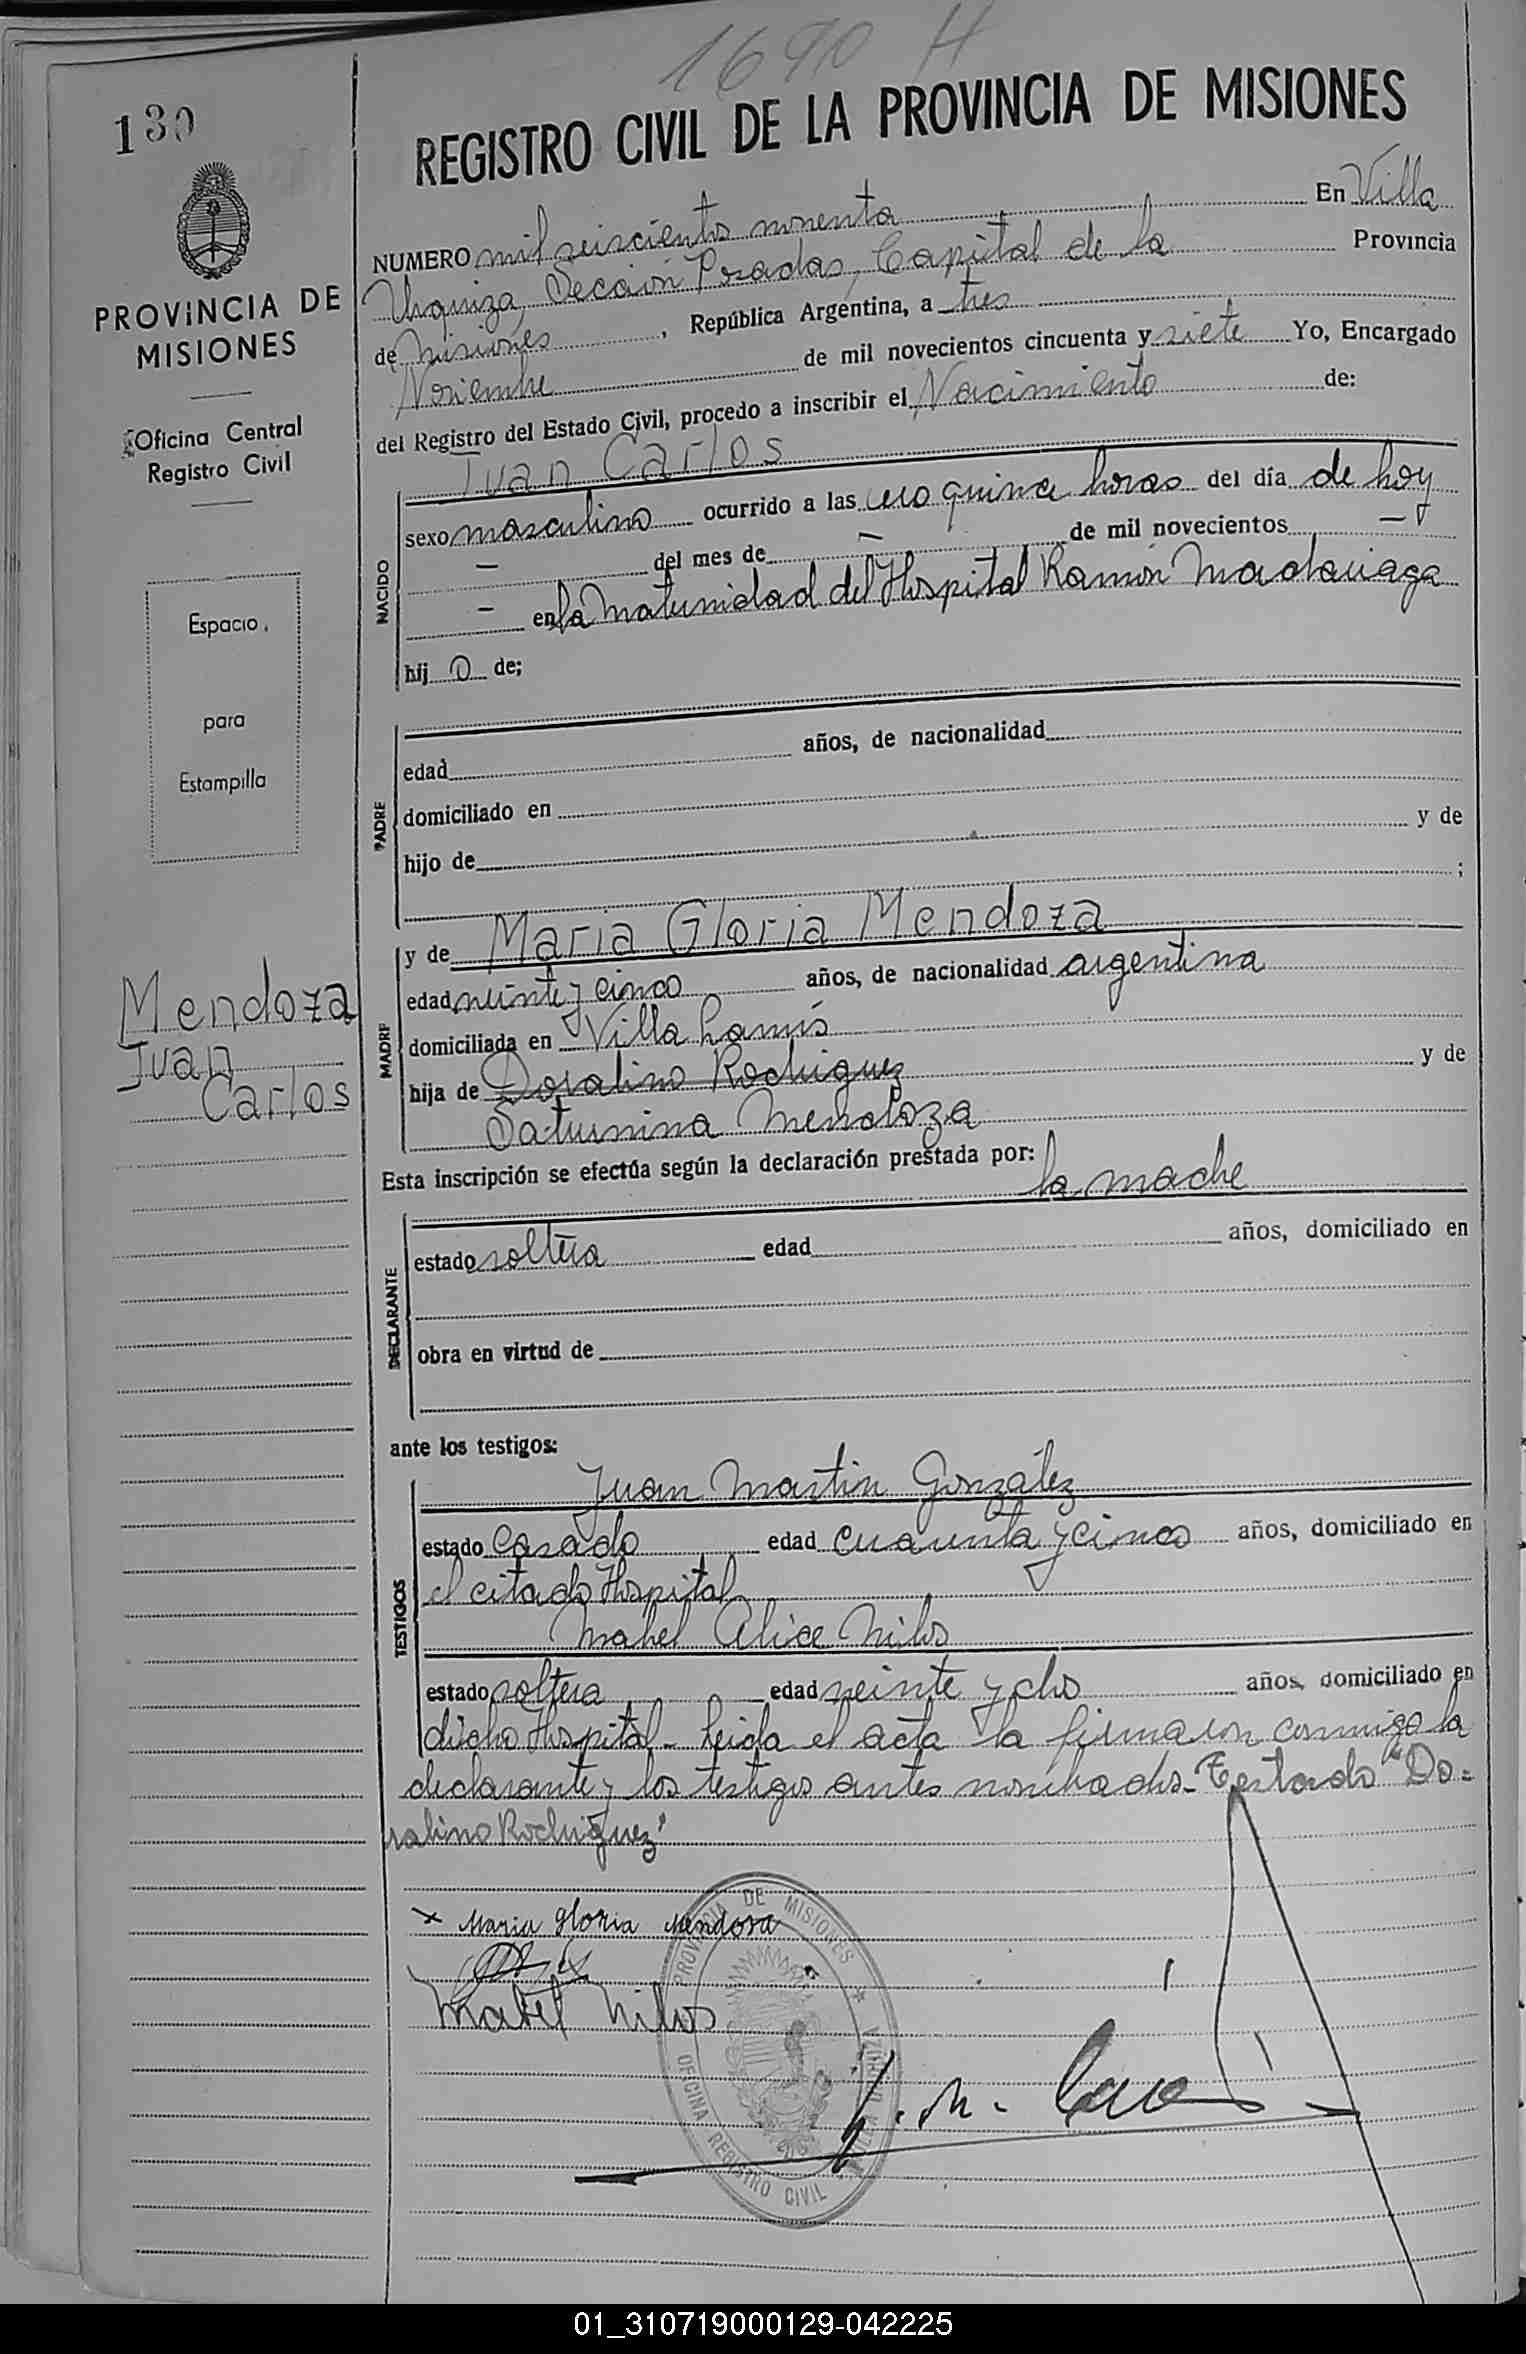 1690 H
130
REGISTRO CIVIL DE LA PROVINCIA DE MISIONES
PROVINCIA DE
MISIONES
Oficina Central
Registro Civil
Espacio
para
Estampilla
Mendoza
Juan
Carlos
NUMERO mil seiscientos noventa En Villa
Urquiza, Sección Posadas, Capital de la Provincia
de Misiones, República Argentina, a tres
Noviembre de mil novecientos cincuenta y siete Yo, Encargado
del Registro del Estado Civil, procedo a inscribir el Nacimiento de:
NACIDO
Juan Carlos
sexo masculino ocurrido a las cero quince horas del día de hoy
— del mes de — de mil novecientos —
— en la Maternidad del Hospital Ramón Madariaga
hij o de;
PADRE
edad años, de nacionalidad
domiciliado en
hijo de y de
;
MADRE
y de Maria Gloria Mendoza
edad veinte y cinco años, de nacionalidad argentina
domiciliada en Villa Lanús
hija de Doralino Rodriguez y de
Saturnina Mendoza
Esta inscripción se efectúa según la declaración prestada por:
la madre
DECLARANTE
estado soltera edad años, domiciliado en
obra en virtud de
ante los testigos:
TESTIGOS
Juan Martin González
estado casado edad cuarenta y cinco años, domiciliado en
el citado Hospital
Mabel Alice
estado soltera edad veinte y ocho años, domiciliado en
dicho Hospital - Leida el acta la firmaron conmigo la
declarante y los testigos antes nombrados - Testado "Do=
ralino Rodriguez"
x Maria Gloria Mendosa
Mabel
PROVINCIA DE MISIONES
OFICINA REGISTRO CIVIL
01_310719000129-042225